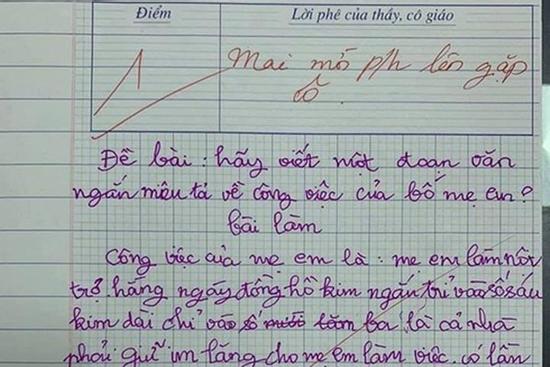 Điểm
Lời phê của thầy, cô giáo
1
Mai mố ph lên gặp
cô.
Đề bài: hãy viết một đoạn văn
ngắn miêu tả về công việc của bố mẹ em?
bài làm
Công việc của mẹ em là: mẹ em làm nội
trợ. hằng ngày đồng hồ kim ngắn trỉ vào số sáu
kim dài chỉ vào số mười lăm ba là cả nhà
phải giữ im lặng cho mẹ em làm việc. có lần